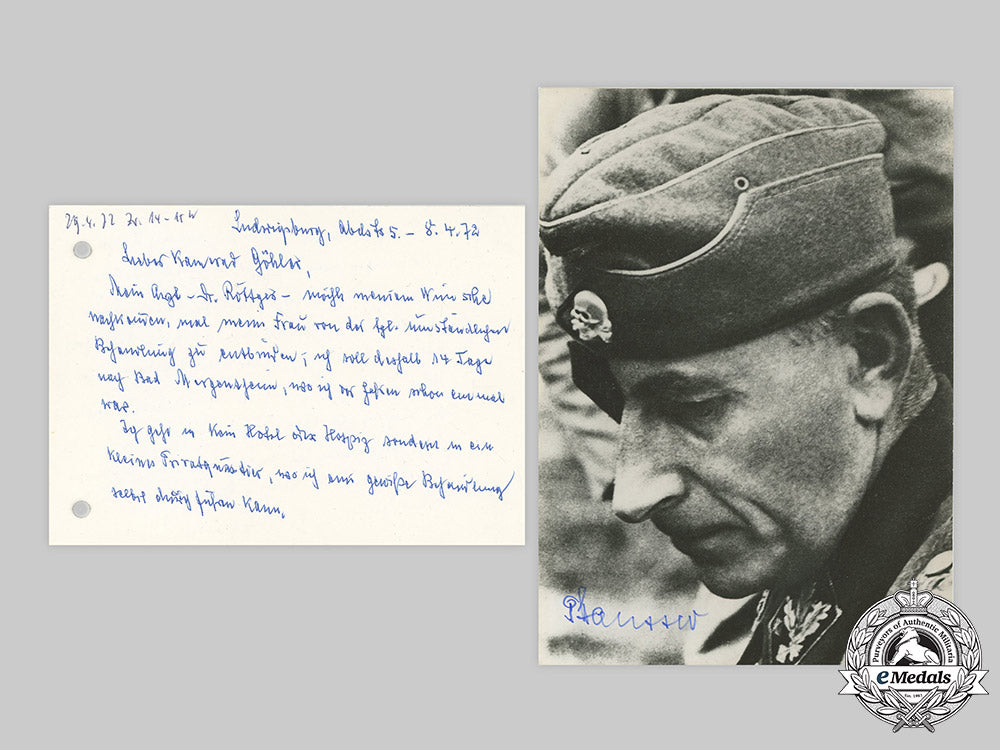 29.4.72 14-15h
Ludwigsburg, 5. - 8.4.72
Lieber Kamerad Göhler,
Mein Arzt - Dr. Röttger - möchte meinem Wunsche
nachkommen, mal meine Frau von der tgl. umständlichen
Behandlung zu entbinden; ich soll deshalb 14 Tage
nach Bad Mergentheim, wo ich vor Jahren schon einmal
war.
Ich gehe in kein Hotel oder Hospiz sondern in ein
kleines Privatquartier, wo ich eine gewisse Behandlung
selbst durchführen kann.
PHausser
Purveyors of Authentic Militaria
eMedals